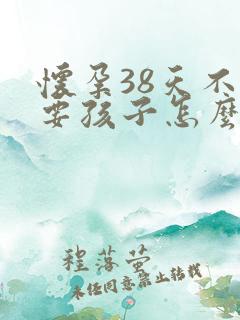 懷孕38天不
要孩子怎麼
程落螢
未任同意禁止轉載